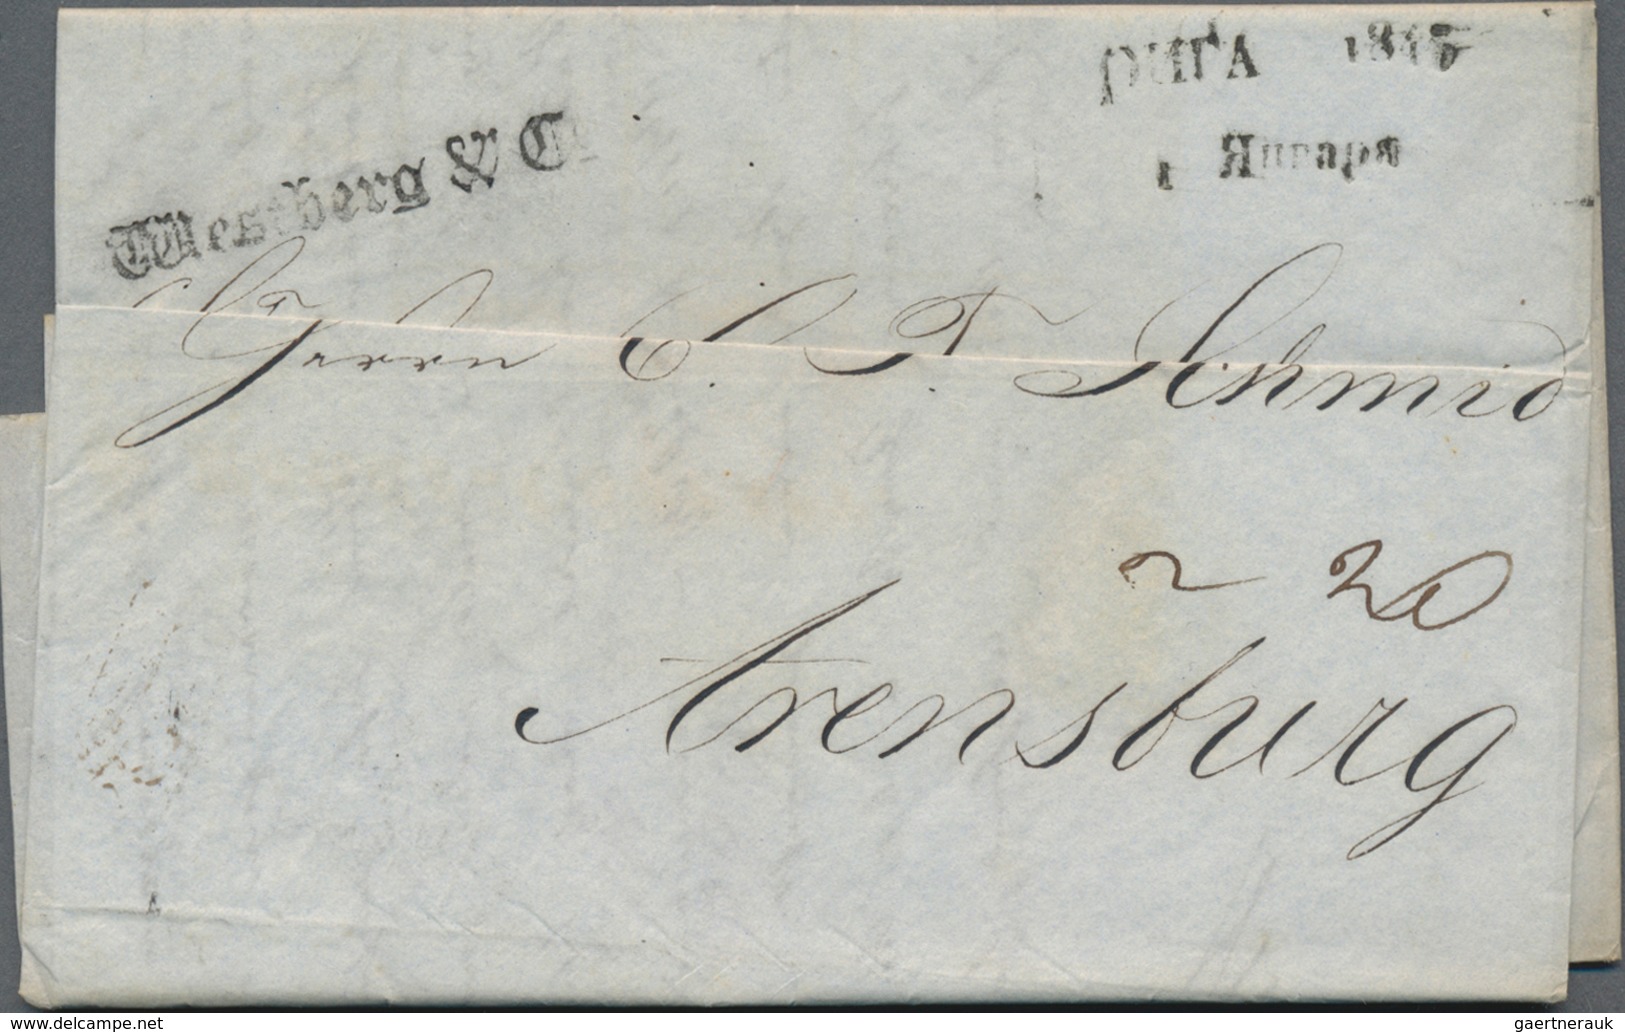 РИГА 1845
1 Января
Westberg & Co
Herrn C. F. Schmid
20
Arensburg
delcampe.net
gaertnerauk